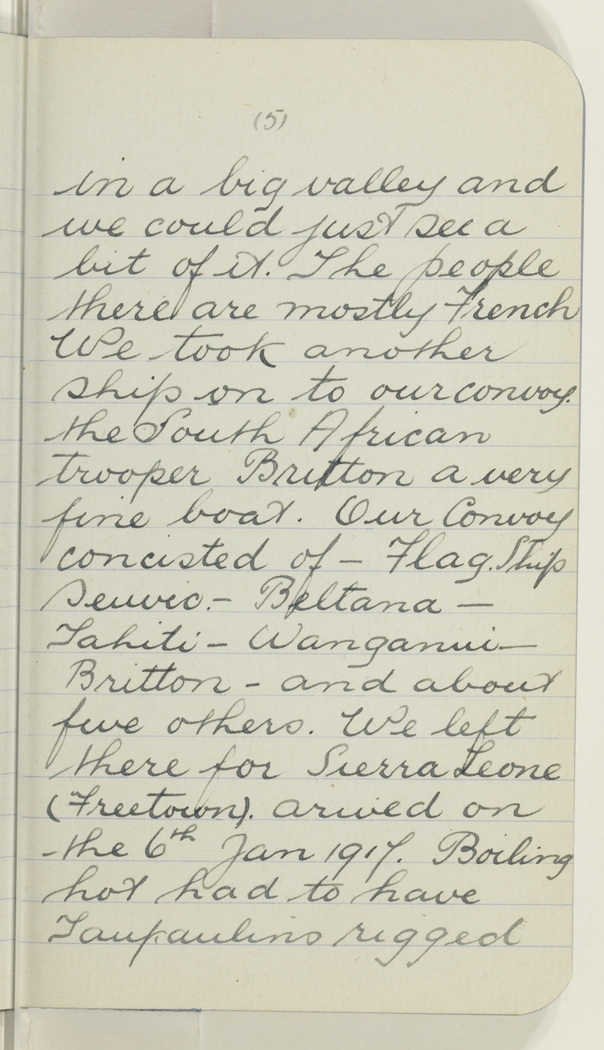 (5)
in a big valley and
we could just see a
bit of it. The people
there are mostly French
We took another
ship on to our convoy.
the South African
trooper Britton a very
fine boat. Our Convoy
concisted of - Flag. Ship
Seuvic. - Beltana -
Tahiti - Wanganui -
Britton - and about
five others. We left
there for Sierra Leone
(Freetown). arived on
the 6th Jan 1917. Boiling
hot had to have
Taupaulins rigged